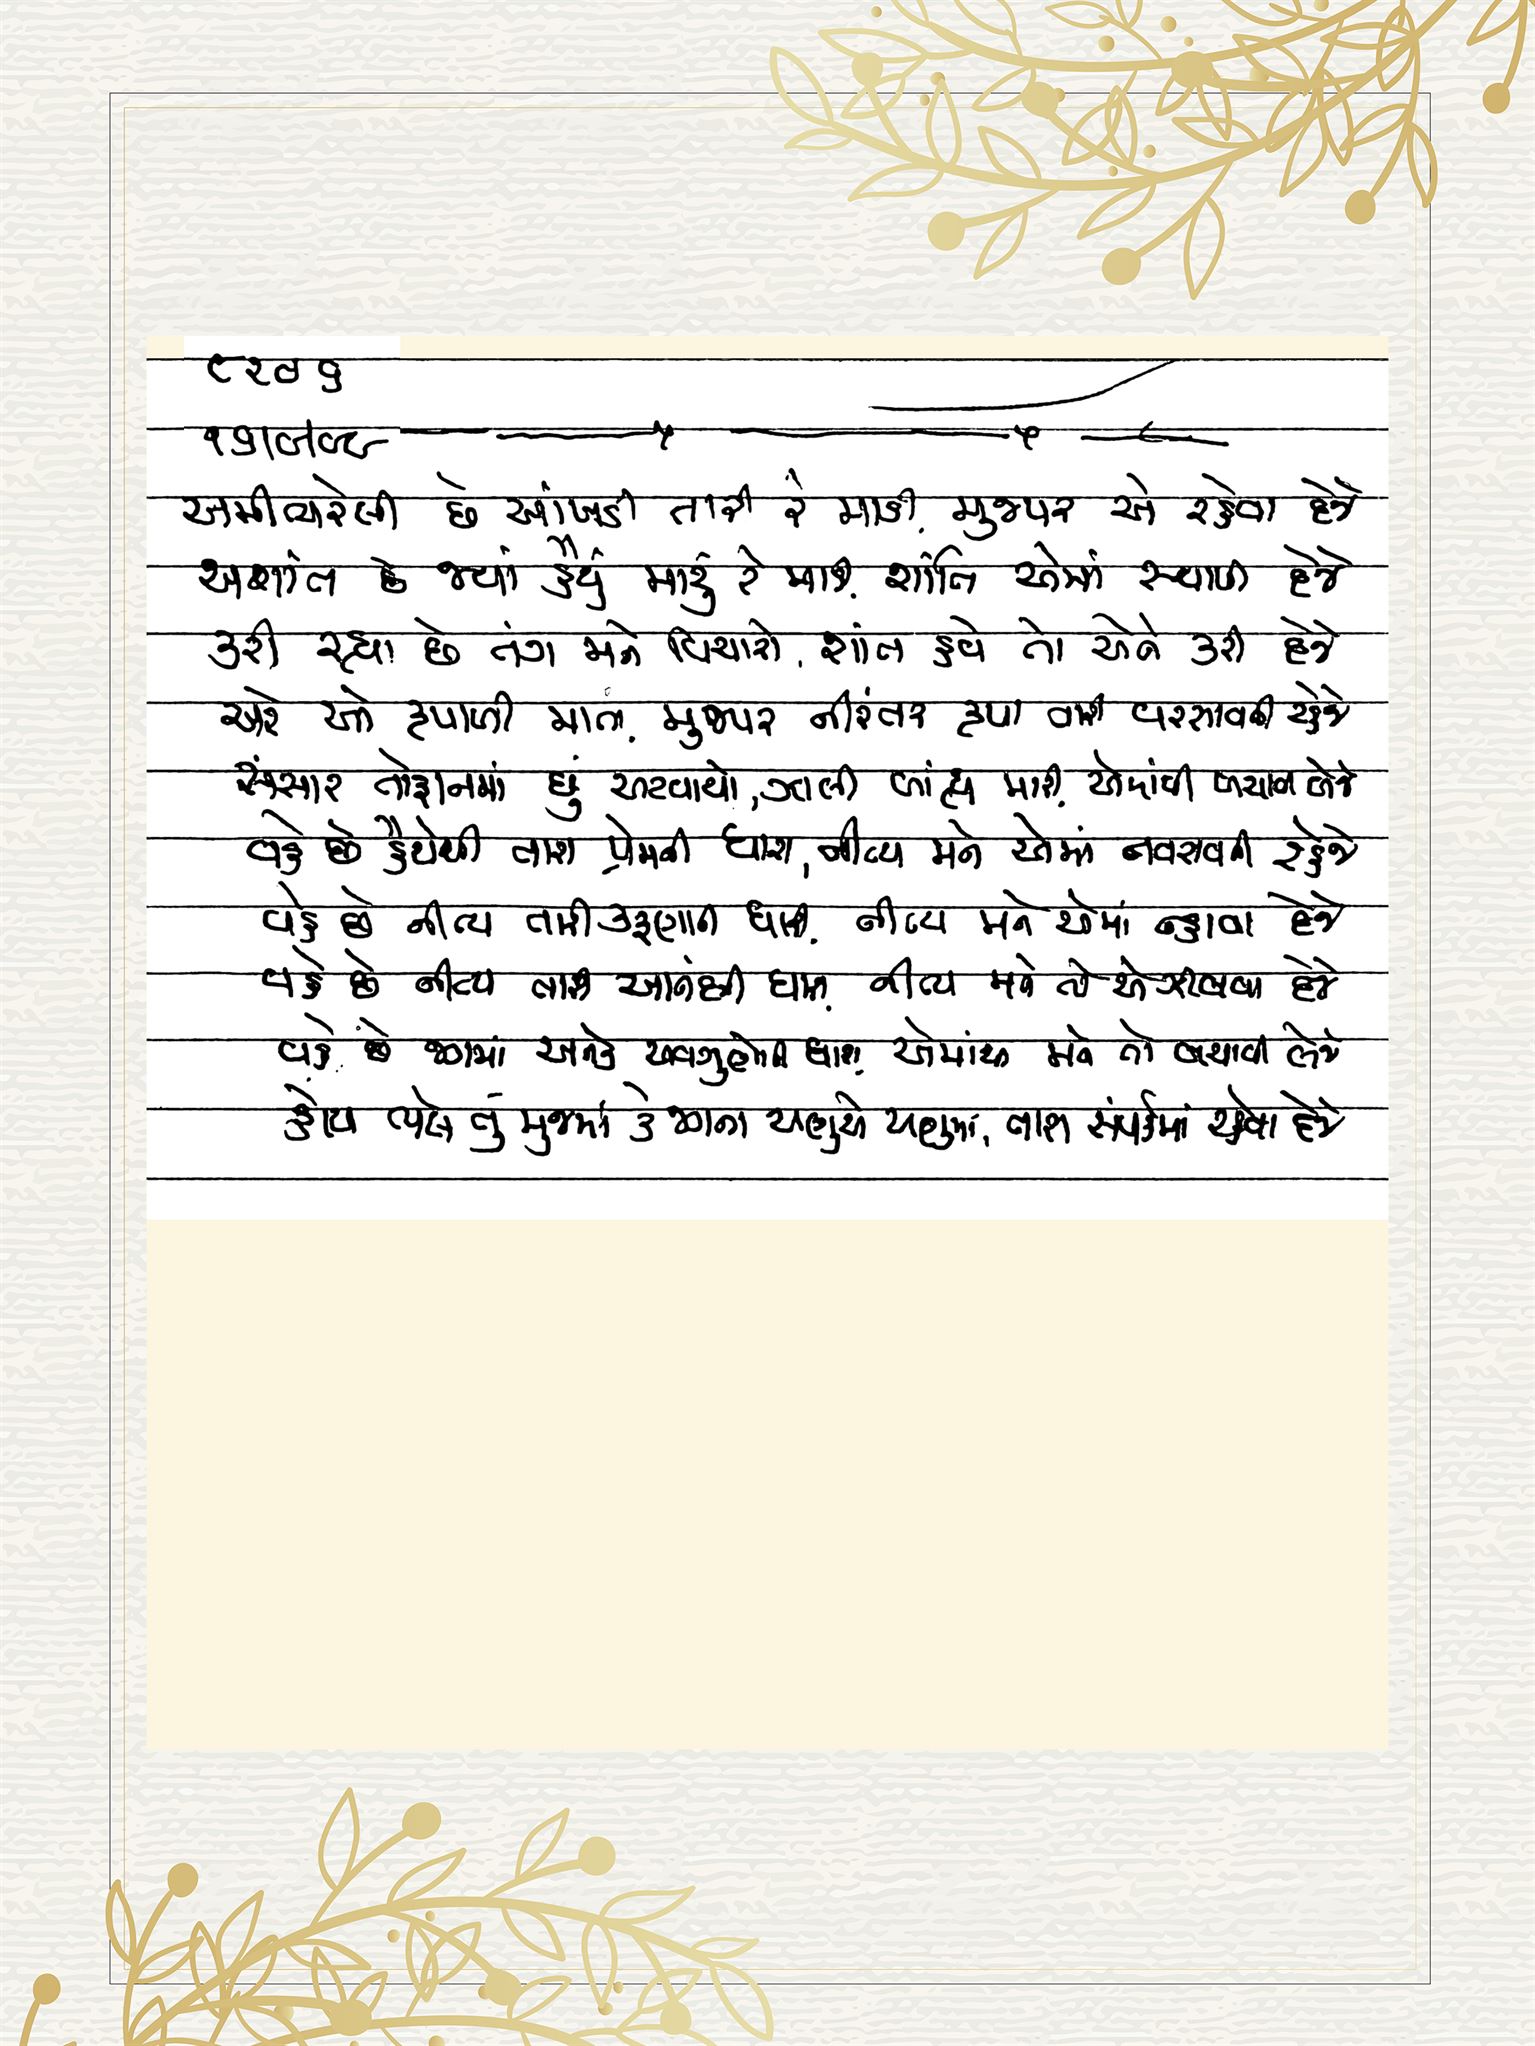 ૯૨૦૭
અમીભરેલી છે આંખડી તારી રે માડી, મુજપર એ રહેવા દેજે
અશાંત છે જ્યાં હૈયું મારું રે માડી, શાંતિ એમાં સ્થાપી દેજે
કરી રહ્યા છે તંગ મને વિચારો, શાંત હવે તો એને કરી દેજે
અરે ઓ કૃપાળી માતા, મુજપર નીરંતર કૃપા તારી વરસાવતી રહેજે
સંસાર તોફાનમાં છું અટવાયો, ઝાલી બાંહ્ય મારી, એમાંથી બચાવી લેજે
વહે છે હૈયેથી તારા પ્રેમની ધારા, નીત્ય મને એમાં નવરાવતી રહેજે
વહે છે નીત્ય તારી કરૂણાની ધારા, નીત્ય મને એમાં ન્હાવા દેજે
વહે છે નીત્ય તારી આનંદની ધારા, નીત્ય મને તો એ ઝીલવા દેજે
વહે છે જગમાં અનેક અવગુણોની ધારા, એમાંથી મને તો બચાવી લેજે
હોય ભલે તું મુજમાં કે જગના અણુએ અણુમાં, તારા સંપર્કમાં રહેવા દેજે